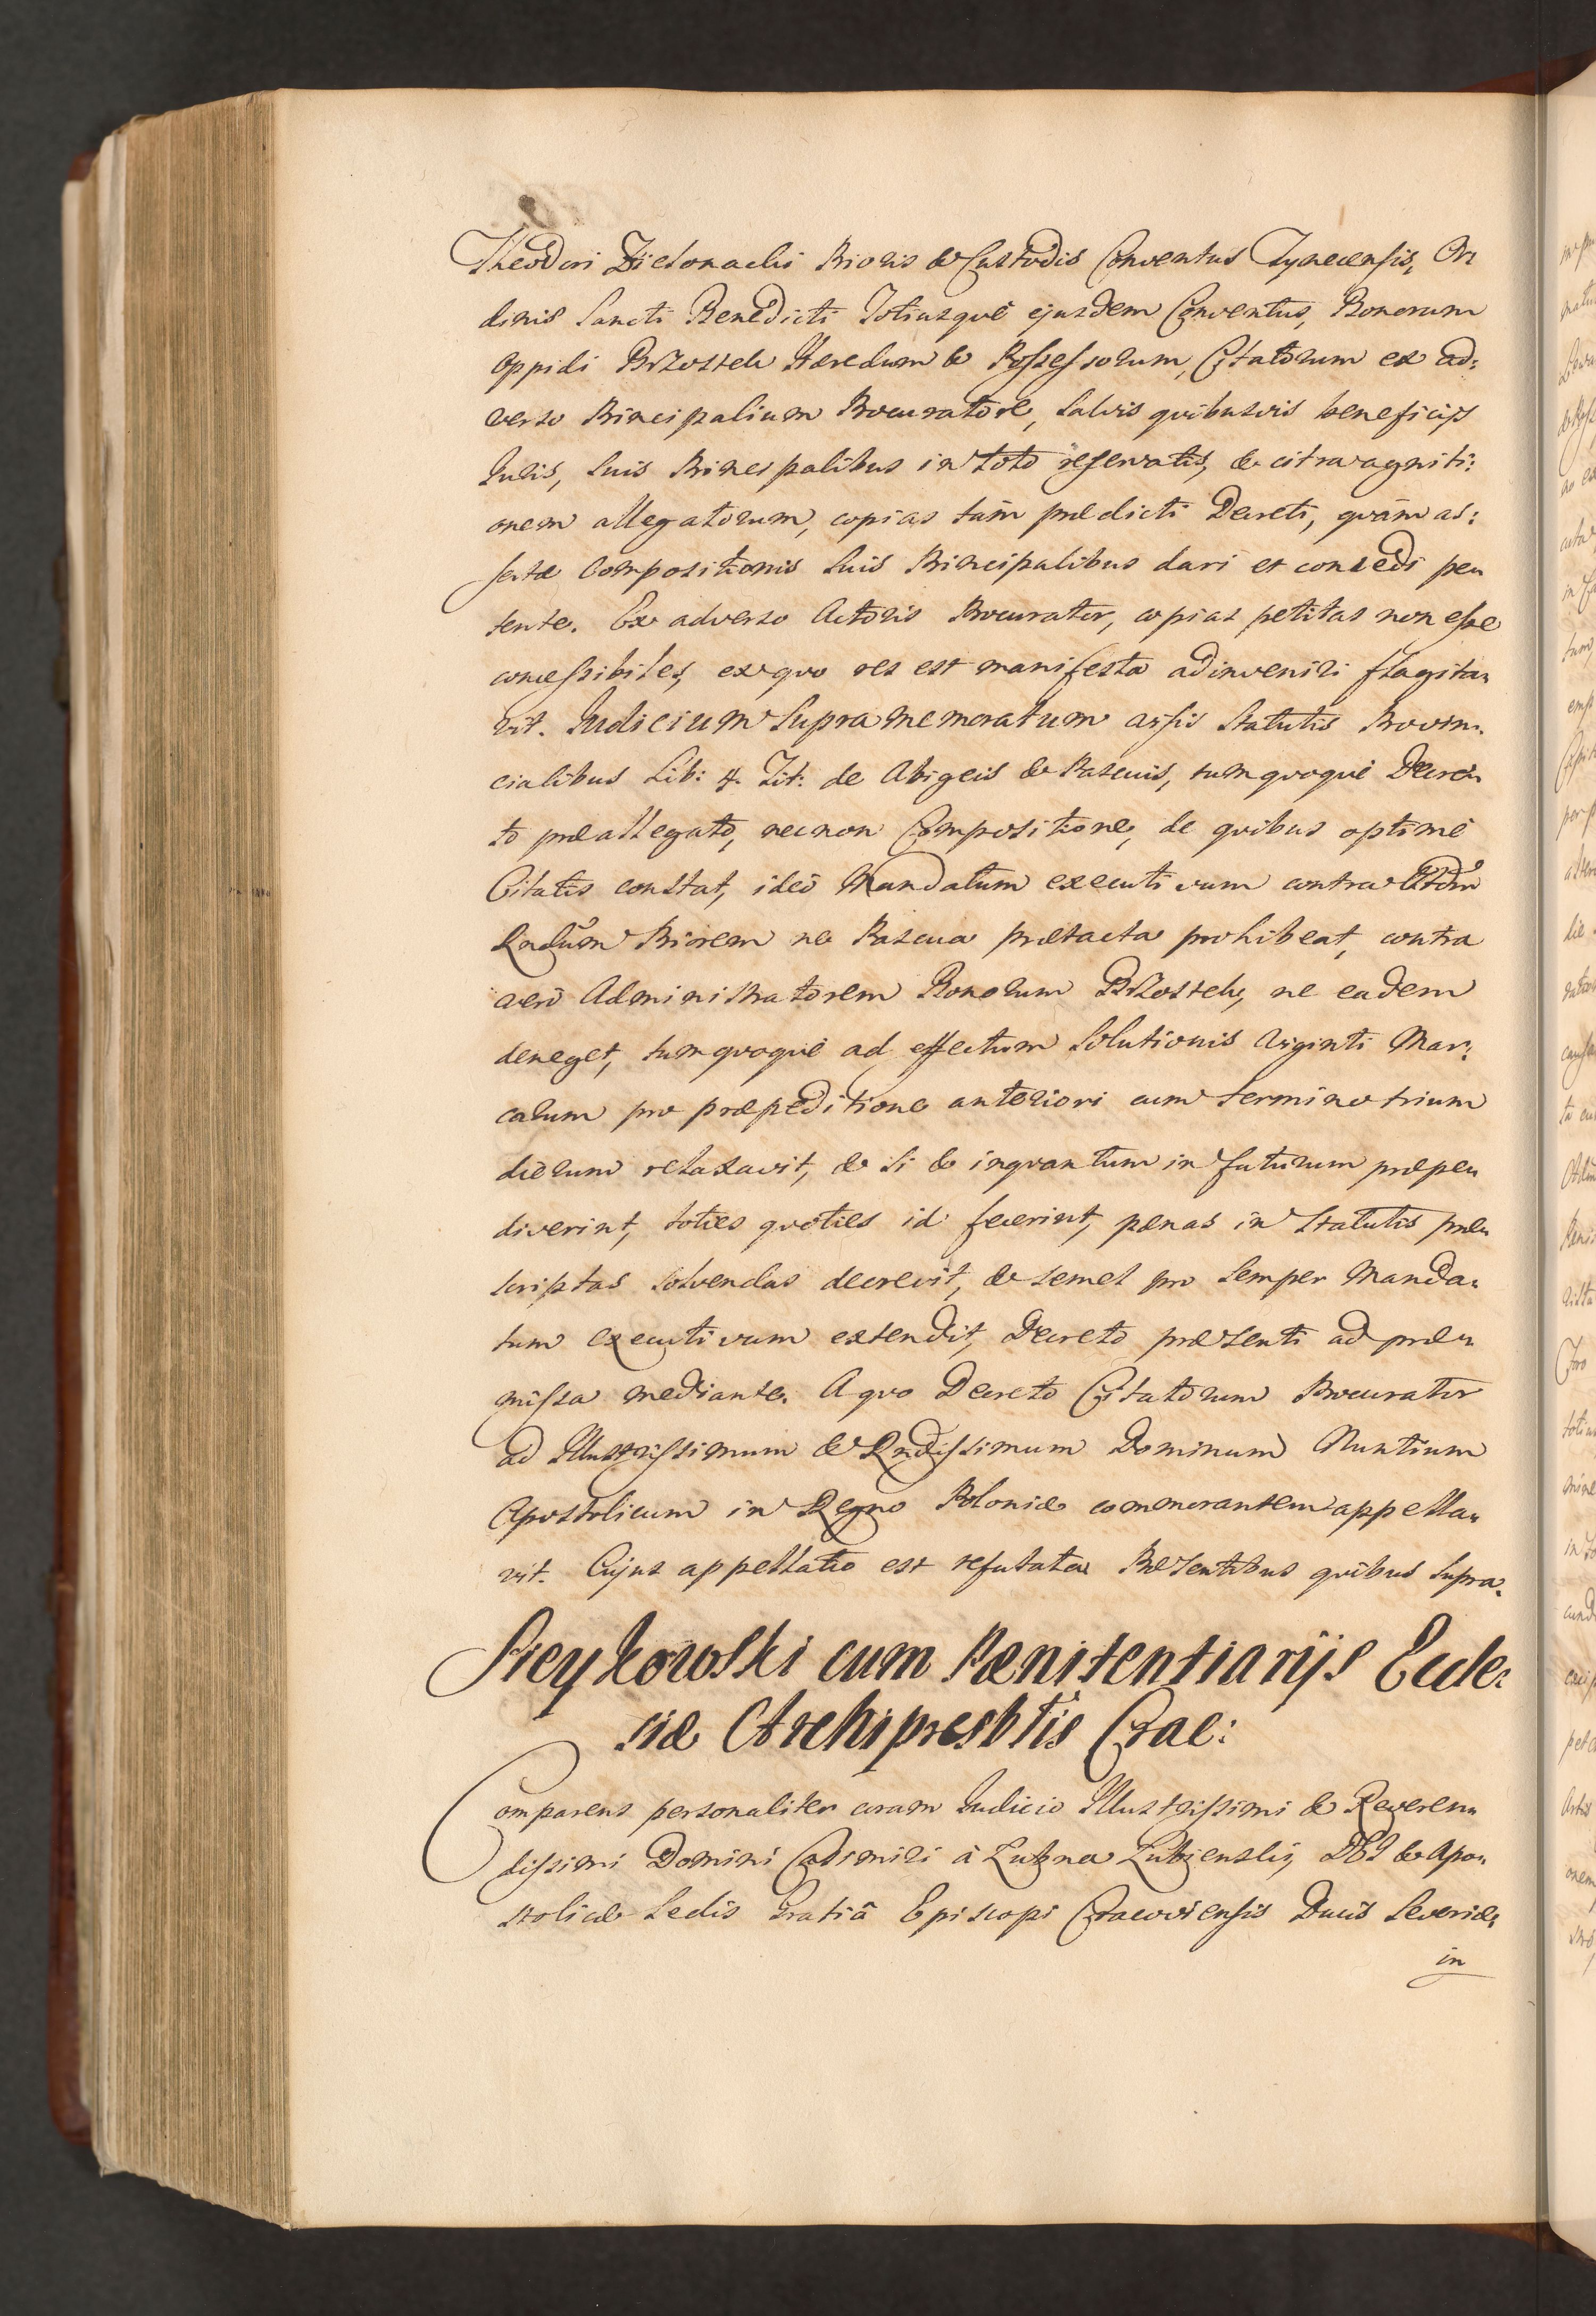 Theodori Zielonacki Prioris & Custodis Conventus Tynecensis, Or
dinis Sancti Benedicti Totiusque ejusdem Conventus, Bonorum
Oppidi Brzostek Hæredum & Possessorum, Citatorum ex ad:
verso Principalium Procuratore, Salvis quibusvis beneficijs
Juris, Suis Principalibus in toto reservatis, & citra agniti:
onem allegatorum, copias tàm prædicti Decreti, quàm as:
sertæ Compositionis Suis Principalibus dari et concedi pe
tente. Ex adverso Actoris Procurator, copias petitas non esse
concessibiles, ex quo res est manifesta adinveniri flagita
vit. Judicium Supramemoratum arsis Statutis Provin
cialibus Lib: 4. Tit: de Abigeis & Pascuis, tum quoquè Decre
to præallegato, necnon Compositione, de quibus optimè
Citatis constat, ideò Mandatum executivum contra
Rndum Priorem ne Pascua prætacta prohibeat, contra
verò Administratorem Bonorum Brzostek, ne eadem
deneget, tum quoquè ad effectum Solutionis viginti Mar:
carum pro præpeditione anteriori cum termino trium
dierum relaxavit, & Si & inquantum in futurum præpe
diverint, toties quoties id fecerint, pænas in Statutis præ
scriptas solvendas decrevit, & semel pro Semper Manda
tum executivum extendit, Decreto præsenti ad præ
missa mediante. A quo Decreto Citatorum Procurator
ad Illustrissimum & Rndissimum Dominum Nuntium
Apostolicum in Regno Poloniæ commorantem appella
vit. Cujus appellatio est refutata Præsentibus quibus Supra.
Steykowski cum Pænitentiarijs Eccle:
siæ Archipresbtis Crac:
Comparens personaliter coram Judicio Illustrissimi & Reveren
dissimi Domini Casimiri à Lubna Lubienski, DEI & Apo
stolicæ Sedis Gratiâ Episcopi Cracoviensis Ducis Severiæ,
in